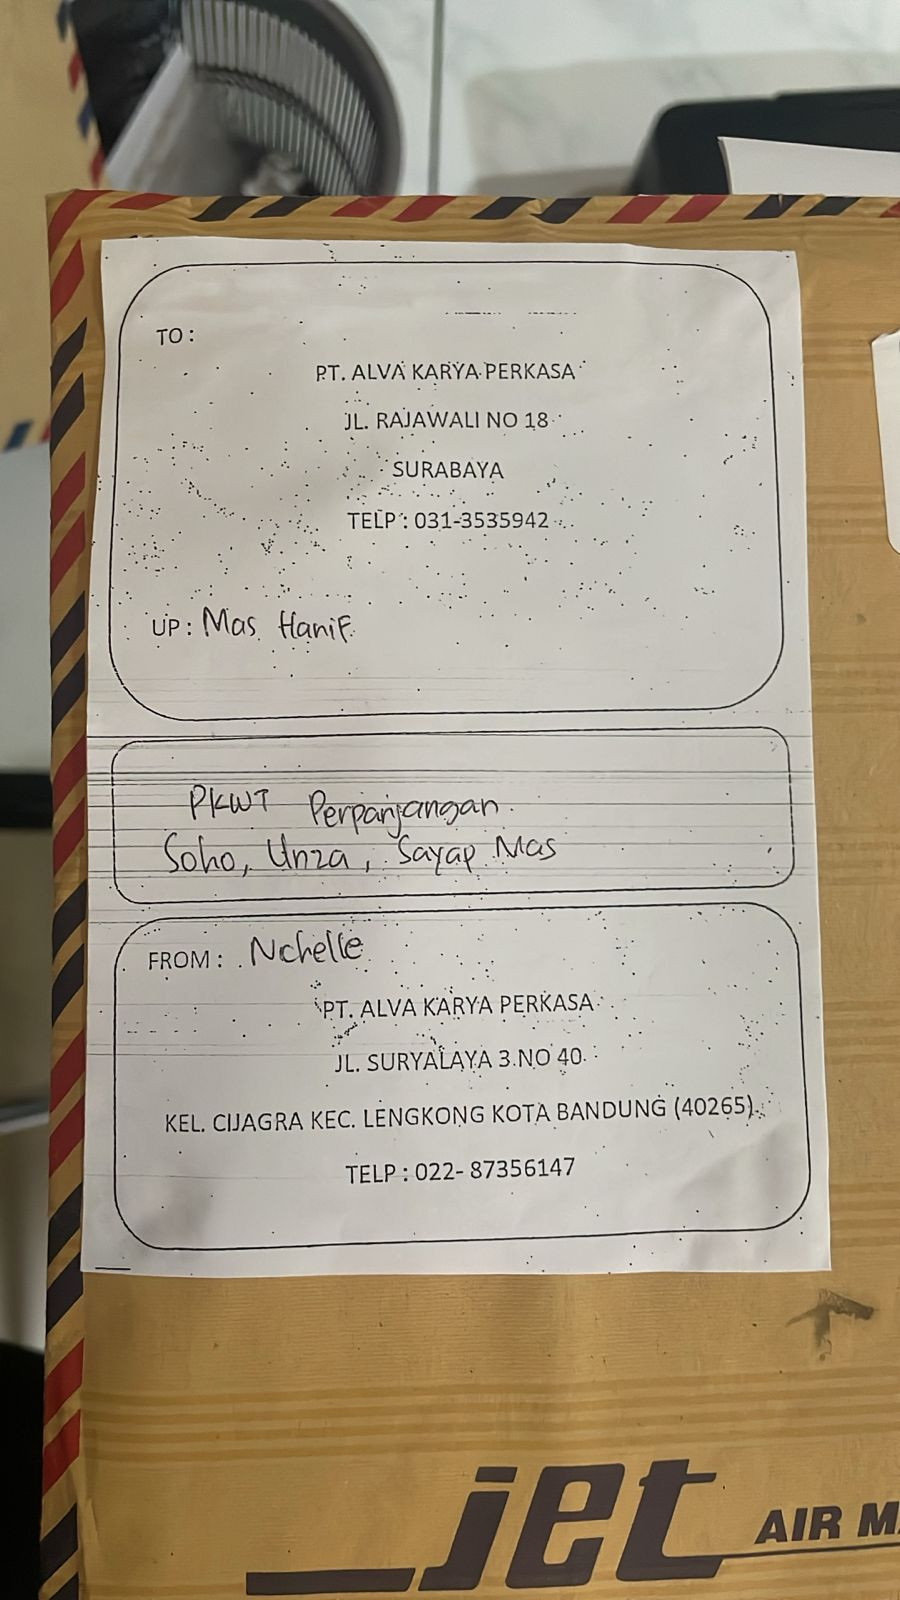 TO :
PT. ALVA KARYA PERKASA
JL. RAJAWALI NO 18
SURABAYA
TELP : 031-3535942
UP : Mas Hanif
PKWT Perpanjangan.
Soho, Unza, Sayap Mas
FROM : Nchelle
PT. ALVA KARYA PERKASA
JL. SURYALAYA 3 NO 40
KEL. CIJAGRA KEC. LENGKONG KOTA BANDUNG (40265)
TELP : 022- 87356147
jet AIR